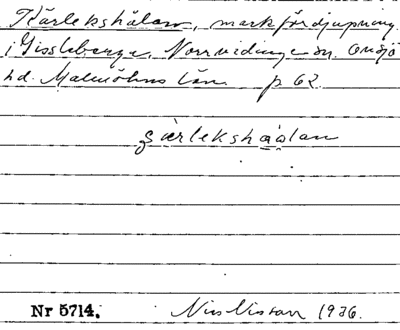 Kärlekshålan, markfördjupning
i Gissleberga, Norrvidinge sn, Onsjö
hd. Malmöhus län p 62
särlekshåålan
Nr 5714. Nils Nilsson 1936.